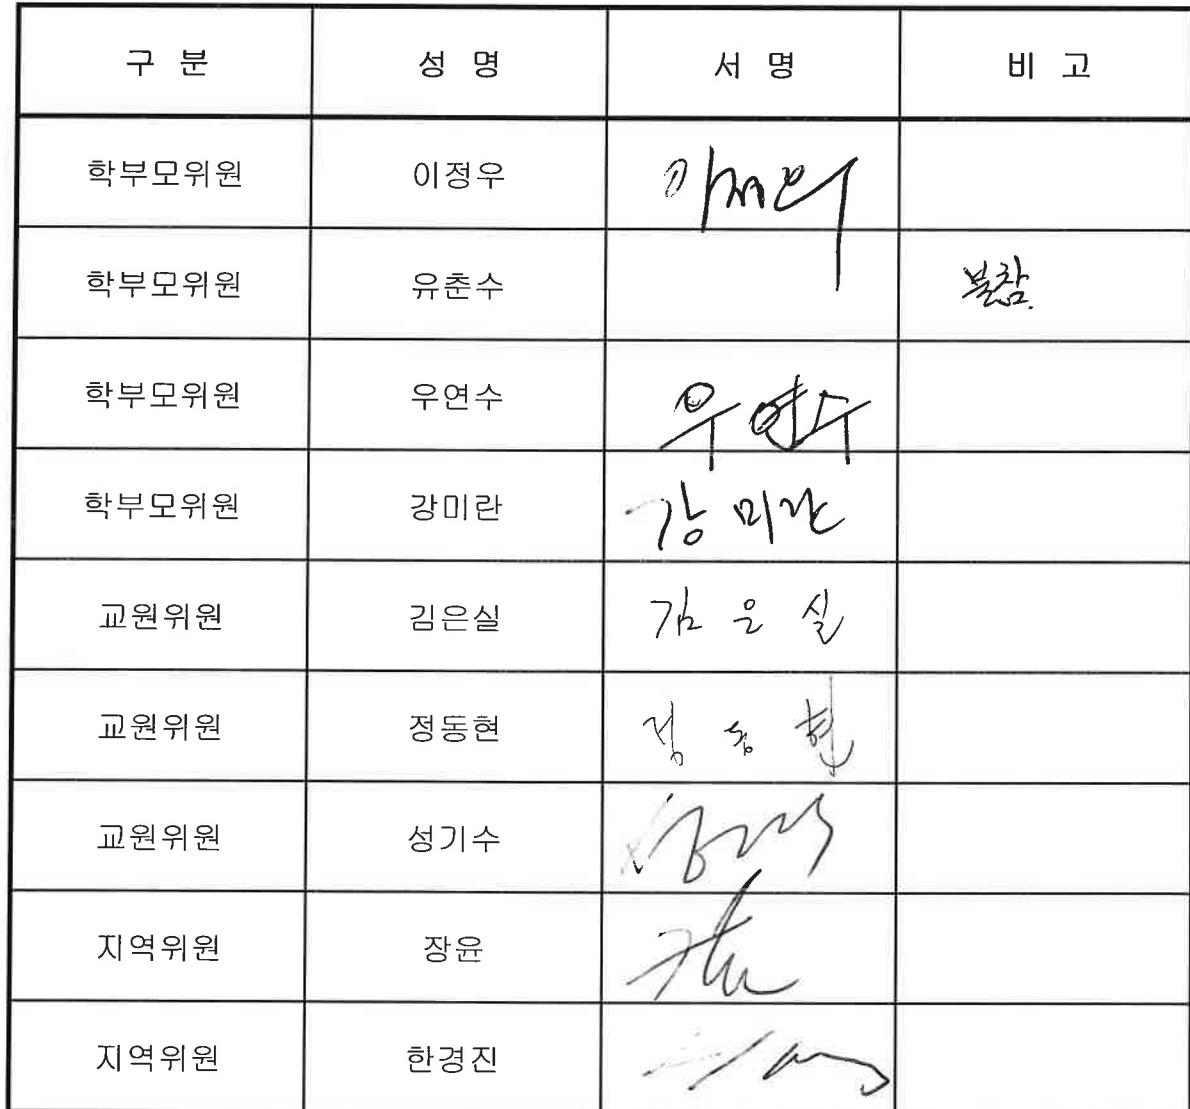 구 분 성 명 서 명 비 고
학부모위원 이정우
학부모위원 유춘수 불참.
학부모위원 우연수 우연수
학부모위원 강미란 강미란
교원위원 김은실 김은실
교원위원 정동현 정동현
교원위원 성기수
지역위원 장윤
지역위원 한경진